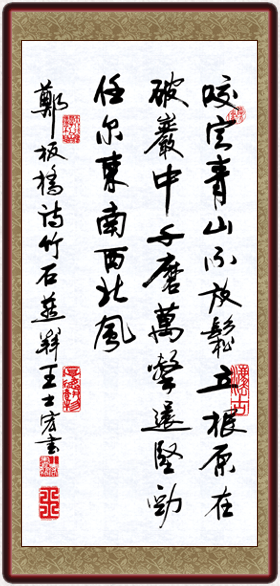 咬定青山不放鬆立根原在
破巖中千磨萬擊還堅勁
任尔東南西北風
鄭板橋诗竹石王士書